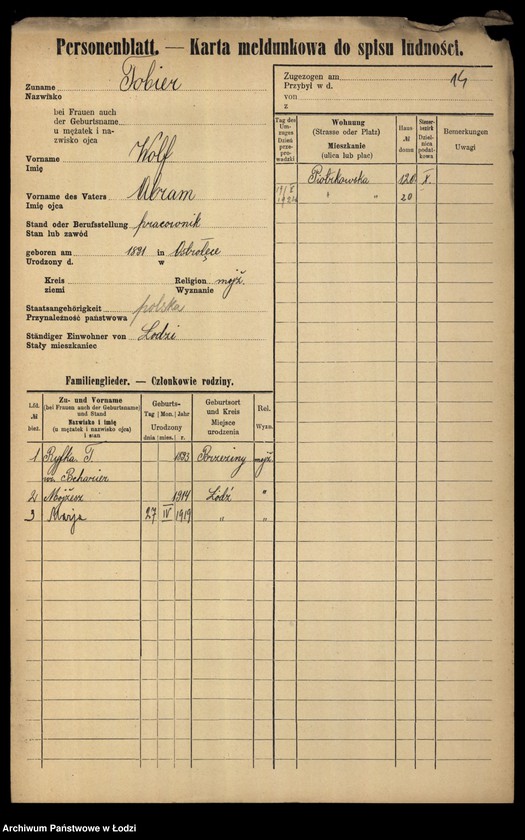 Personenblatt. — Karta meldunkowa do spisu ludności.
Zuname Tobier
Nazwisko
bei Frauen auch
der Geburtsname
u mężatek i na-
zwisko ojca
Vorname Wolf
Imię
Vorname des Vaters Abram
Imię ojca
Stand oder Berufsstellung pracownik
Stan lub zawód
geboren am 1891 in Ostrołęce
Urodzony d. w
Kreis Religion mojż.
ziemi Wyznanie
Staatsangehörigkeit polska
Przynależność państwowa
Ständiger Einwohner von Łodzi
Stały mieszkaniec
Zugezogen am 14
Przybył w d.
von
z
Tag des Um-zuges Dzień prze-prowadzki
Wohnung
(Strasse oder Platz)
Mieszkanie
(ulica lub plac)
Haus № domu
Steuer-bezirk Dziel-nica podat-kowa
Bemerkungen
Uwagi
Piotrkowska 120 X.
" " 20
Familienglieder. — Członkowie rodziny.
Lfd. № bież.
Zu- und Vorname
(bei Frauen auch der Geburtsname)
und Stand
Nazwisko i imię
(u mężatek i nazwisko ojca)
i stan
Geburts-
Tag Mon. Jahr
Urodzony
dnia mies. r.
Geburtsort
und Kreis
Miejsce
urodzenia
Rel.
Wyzn.
1 Ryfka T. 1893 Brzeziny mojż.
2 Mojżesz 1914 Łódź "
3 Marja 27 IV 1919 " "
Archiwum Państwowe w Łodzi